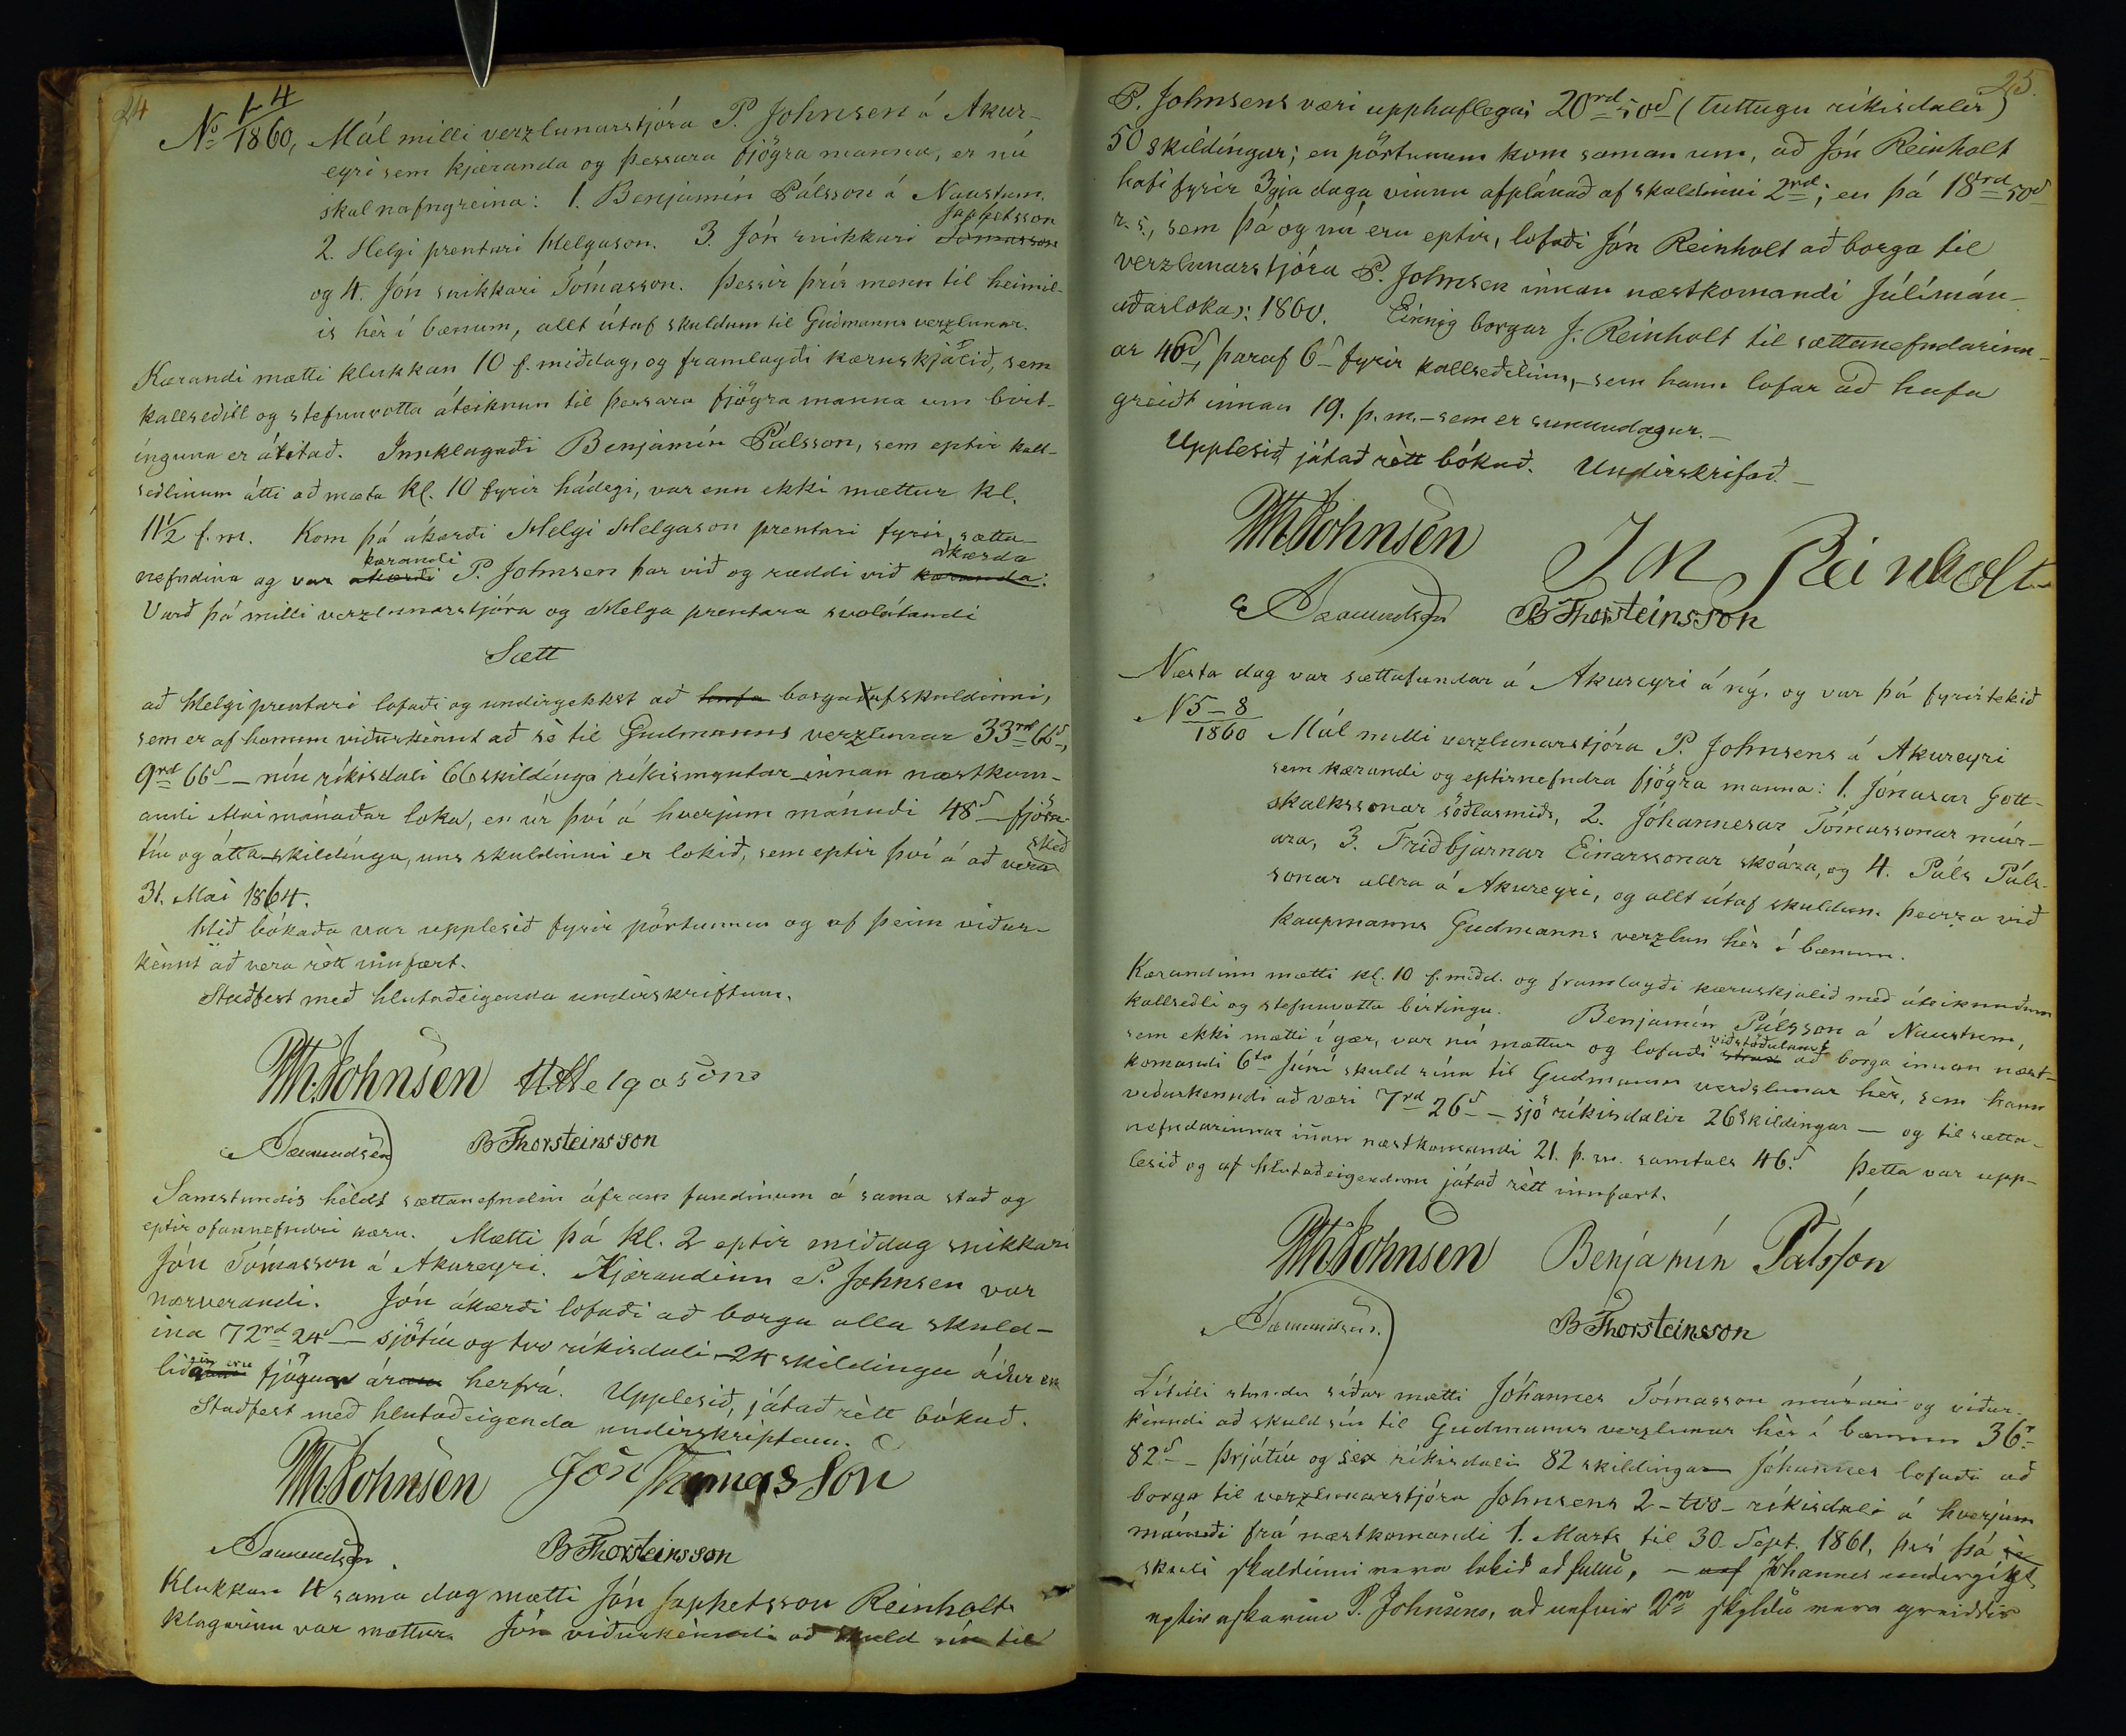 24
No 1-4/1860, Mál milli verzlunarstjóra P. Johnsen á Akur-
eyri sem kjæranda og þessara fjögra manna, er nú
skal nafngreina: 1. Benjamín Pálsson á Naustum.
2. Helgi prentari Helgason. 3. Jón snikkari Tómasson Japhetsson
og 4. Jón snikkari Tómasson. Þessir þrír menn til heimil-
is hèr í bænum, allt útaf skuldum til Gudmanns verzlunar.
Kærandi mætti klukkan 10 f. miðdag, og framlagði kæruskjalið, sem
kallseðill og stefnuvotta áteiknun til þessara fjögra manna um birt-
ínguna er áritað. Innklagaði Benjamín Pálsson, sem eptir kall-
seðlinum átti að mæta kl. 10 fyrir hádegi, var enn ekki mættur kl.
11½ f. m. Kom þá ákærði Helgi Helgason prentari fyrir sætta-
nefndina og var ákærði kærandi P. Johnsen þar við og ræddi við kæranda ákærda.
Varð þá milli verzlunarstjóra og Helga prentara svolátandi
Sætt
að Helgi prentari lofaði og undirgekkst að hafa borga af skuldinni,
sem er af honum viðurkènnt að sè til Gudmanns verzlunar 33rd 66s,
9rd 66s - níu ríkisdali 66 skildínga ríkismyntar innan næstkom-
andi Mai mánaðar loka, en úr því á hverjum mánuði 48s - fjöru-
tíu og átta skildínga, uns skuldinni er lokið, sem eptir því á að vera skèð
31. Mai 1864.
Hið bókaða var upplesið fyrir pörtunum og af þeim viður-
kènnt að vera rètt innfært.
Staðfest með hlutaðeigenda undirskriftum.
PTh. Johnsen H Helgason
Sæmundsen B Thorsteinsson
Samstundis hèldt sættanefndin áfram fundinum á sama stað og
eptir ofannefndri kæru. Mætti þá kl. 2 eptir middag snikkari
Jón Tómasson á Akureyri. Kjærandinn P. Johnsen var
nærverandi. Jón ákærði lofaði að borga alla skuld-
ina 72rd 24s - sjötíu og two ríkisdali 24 skildínga áður en
liðin eru fjögur ár herfrá. Upplesið, játað rètt bókað.
Staðfest með hlutaðeigenda undirskriptum.
PTh. Johnsen Jón Thomasson
Sæmundsen B Thorsteinsson
Klukkan 4 sama dag mætti Jón Japhetsson Reinholt
klagarinn var mættur. Jón viðurkènndi að skuld sín til
25.
P. Johnsens væri upphaflega 20rd 50s (tuttugu ríkisdalir)
50 skildíngar; en pörtunum kom saman um, að Jón Reinholt
hafi fyrir 3gja daga vinnu afplánað af skuldinni 2rd; en þá 18rd 50s
r. s., sem þá og nú eru eptir, lofaði Jón Reinholt að borga til
verzlunarstjóra P. Johnsen innan næstkomandi Júlímán-
aðarloka: 1860. Einnig borgar J. Reinholt til sættanefndarinn-
ar 46s, þaraf 6s fyrir kallseðilinn, - sem hann lofar að hafa
greiðt innan 19. þ. m. - sem er sunnudagur. -
Upplesið játað rètt bókað. Undirskrifað. -
PTh. Johnsen Jón Reinholt
Sæmundsen B Thorsteinsson
Næsta dag var sættafundar á Akureyri á ný, og var þá fyrirtekið
N 5-8/1860 Mál milli verzlunarstjóra P. Johnsens á Akureyri
sem kæranda og eptirnefndra fjögra manna: 1. Jónasar Gott-
skalkssonar söðlasmiðs, 2. Jóhannesar Tómassonar múr-
ara, 3. Friðbjarnar Einarssonar skoára, og 4. Páls Páls-
sonar allra á Akureyri, og allt útaf skuldum þeirra við
kaupmanns Gudmanns verzlun hèr í bænum.
Kærandinn mætti kl. 10 f. midd. og framlagði kæruskjalið með áteiknuðum
kallseðli og stefnuvotta birtingu. Benjamín Pálsson á Naustum,
sem ekki mætti í gær, var nú mættur og lofaði strax viðstöðulaust að borga innan næst-
komandi 6ta Júní skuld sína til Gudmanns verdslunar hèr, sem hann
viðurkenndi að væri 7rd 26s - sjö ríkisdalir 26 skildingar - og til sætta-
nefndarinnar innan næstkomandi 21. þ. m. samtals 46s. Þetta var upp-
lesið og af hlutaðeigendum játað rètt innfært.
PTh. Johnsen Benjamín Pálsson
Sæmundsen. B Thorsteinsson
Lítilli stundu síðar mætti Jóhannes Tómasson múrari og viður-
kènndi að skuld sín til Gudmanns verzlunar hèr í bænum 36r
82s - þrjátíu og sex ríkisdali 82 skildingar Jóhannes lofaði að
borga til verzlunarstjóra Johnsens 2 - two - ríkisdali á hverjum
mánuði frá næstkomandi 1. Marts til 30. Sept. 1861, því þá
skuli skuldinni vera lokið að fullu, - Jóhannes undirgíkst
eptir áskorun P. Johnsens, að nefndir 2rd skyldu vera greiddir